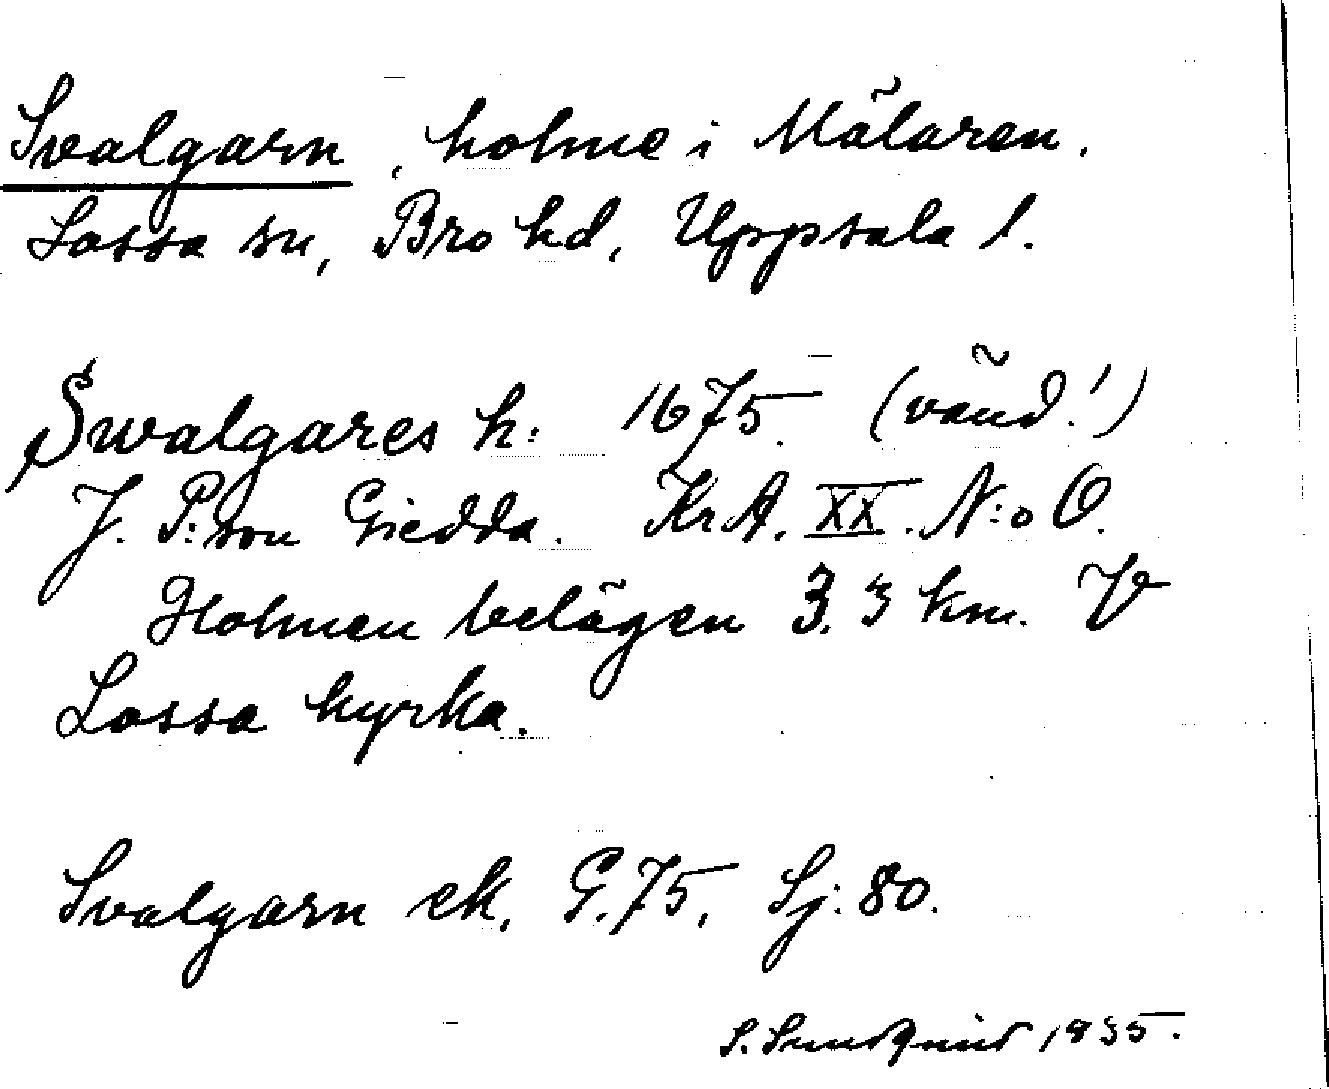 Svalgarn, holme i Mälaren.
Lossa sn, Bro hd, Uppsala l.
Swalgares h: 1675. (vänd!)
J. P:son Giedda. KrA. XX. N:o O.
Holmen belägen 3,3 km. V
Lossa kyrka.
Svalgarn ek. G. 75, Sj: 80.
S. Sundqvist 1935.